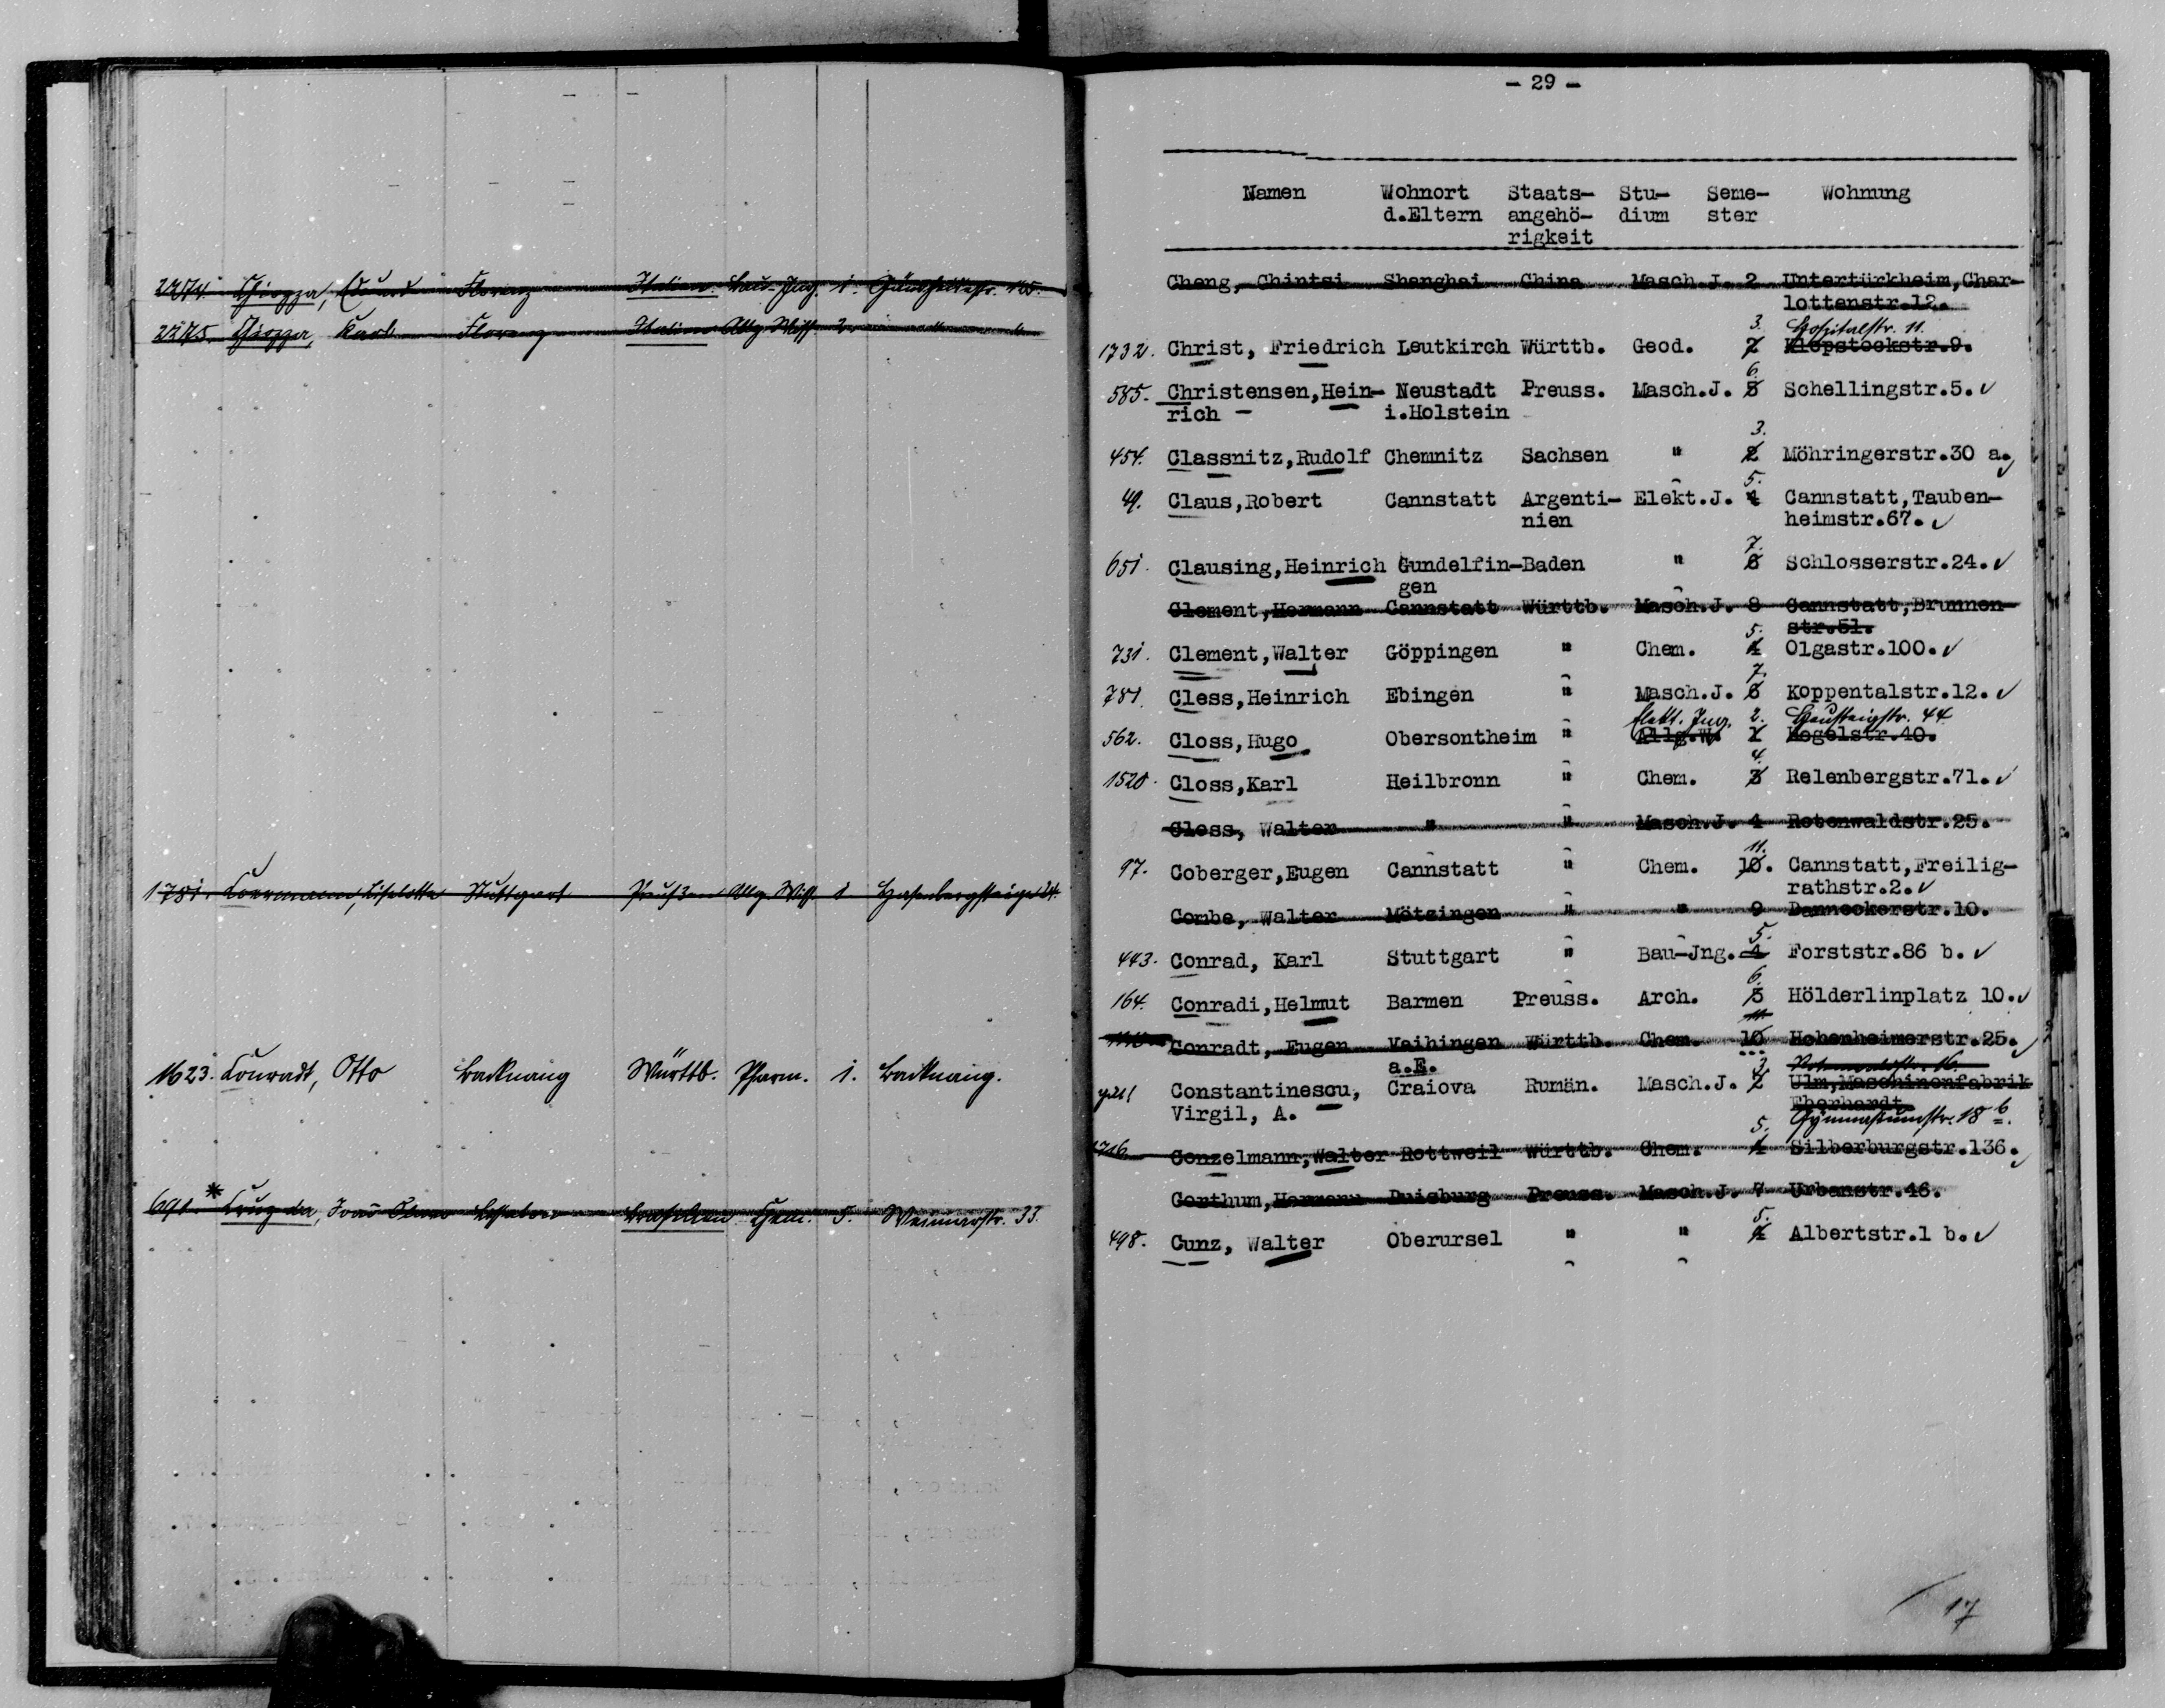 2274. Chiozza, Edmund Florenz Italien. Bau-Jng. 1.
2275. Chiozza, Karl Florenz Italien Allg. Wiss. 2. " "
1781. Cornmann, Liselotte Stuttgart Preußen Allg. Wiss. 1 Hasenbergsteige
1623. Conradt, Otto Backnang Württb. Pharm. 1. Backnang.
691. * Cruz da, Lissabon Brasilien Chem. 5. Weimarstr. 33.
- 29 -
Namen Wohnort Staats- Stu- Seme- Wohnung
d.Eltern angehö- dium ster
rigkeit
Cheng, Chintsi Shanghai China Masch.J. 2 Untertürkheim,Char-
lottenstr.12.
3. Hospitalstr. 11.
1732. Christ, Friedrich Leutkirch Württb. Geod. 2 Klopstockstr.9.
6.
585. Christensen,Hein- Neustadt Preuss. Masch.J. 5 Schellingstr.5. ✓
rich - i.Holstein
3.
454. Classnitz,Rudolf Chemnitz Sachsen " 2 Möhringerstr.30 a.
5.
49. Claus,Robert Cannstatt Argenti- Elekt.J. 4 Cannstatt,Tauben-
nien heimstr.67. ✓
7.
651. Clausing,Heinrich Gundelfin-Baden " 6 Schlosserstr.24. ✓
gen
Clement,Hermann Cannstatt Württb. Masch.J. 8 Cannstatt,Brunnen-
str.51.
5.
731. Clement,Walter Göppingen " Chem. 4 Olgastr.100. ✓
7.
781. Cless,Heinrich Ebingen " Masch.J. 6 Koppentalstr.12. ✓
Elekt. Jng. 2. Heusteigstr. 44
562. Closs,Hugo Obersontheim " Allg.W. 1 Hegelstr.40.
4.
1520. Closs,Karl Heilbronn " Chem. 3 Relenbergstr.71. ✓
Closs, Walter " " Masch.J. 4 Rotenwaldstr.25.
11.
97. Coberger,Eugen Cannstatt " Chem. 10. Cannstatt,Freilig-
rathstr.2. ✓
Combe, Walter Mötzingen " " 9 Danneckerstr.10.
5.
443. Conrad, Karl Stuttgart " Bau-Jng. 4 Forststr.86 b. ✓
6.
164. Conradi,Helmut Barmen Preuss. Arch. 5 Hölderlinplatz 10. ✓
11.
Conradt, Eugen Vaihingen Württb. Chem. 10 Hohenheimerstr.25.
a.E. 3. Rotenwaldstr. 16.
Constantinescu, Craiova Rumän. Masch.J. 2 Ulm,Maschinenfabrik
Virgil, A. Eberhardt
Gymnasiumstr. 18 b.
5.
1716 Conzelmann,Walter Rottweil Württb. Chem. 4 Silberburgstr.136.
Corthum,Hermann Duisburg Preuss. Masch.J. 7 Urbanstr.46.
5.
498. Cunz, Walter Oberursel " " 4 Albertstr.1 b. ✓
17